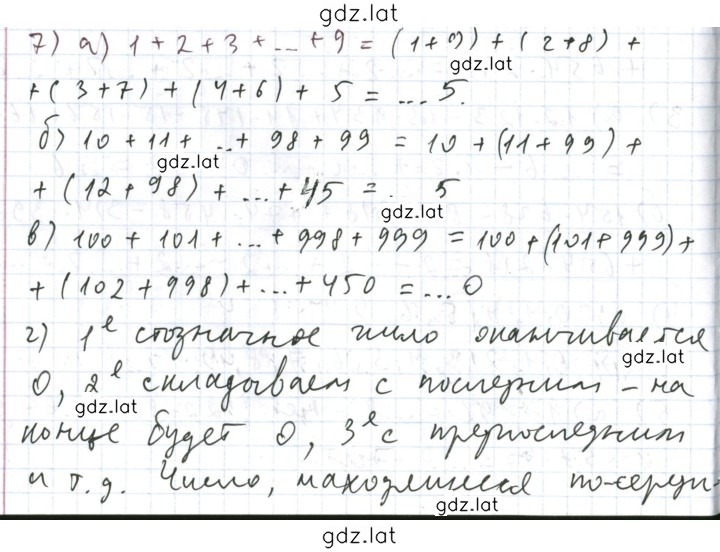 gdz.lat
7) а) 1 + 2 + 3 + ... + 9 = (1+9) + (2+8) +
gdz.lat
+ (3+7) + (4+6) + 5 = ... 5.
б) 10 + 11 + ... + 98 + 99 = 10 + (11 + 99) +
gdz.lat
+ (12 + 98) + ... + 45 = ... 5
gdz.lat
в) 100 + 101 + ... + 998 + 999 = 100 + (101 + 999) +
+ (102 + 998) + ... + 450 = ... 0
г) 1е стозначное число оканчивается
gdz.lat
0, 2е складываем с последним – на
gdz.lat
конце будет 0, 3е с предпоследним
и т. д. Число, находящиеся по-середи-
gdz.lat
gdz.lat
gdz.lat